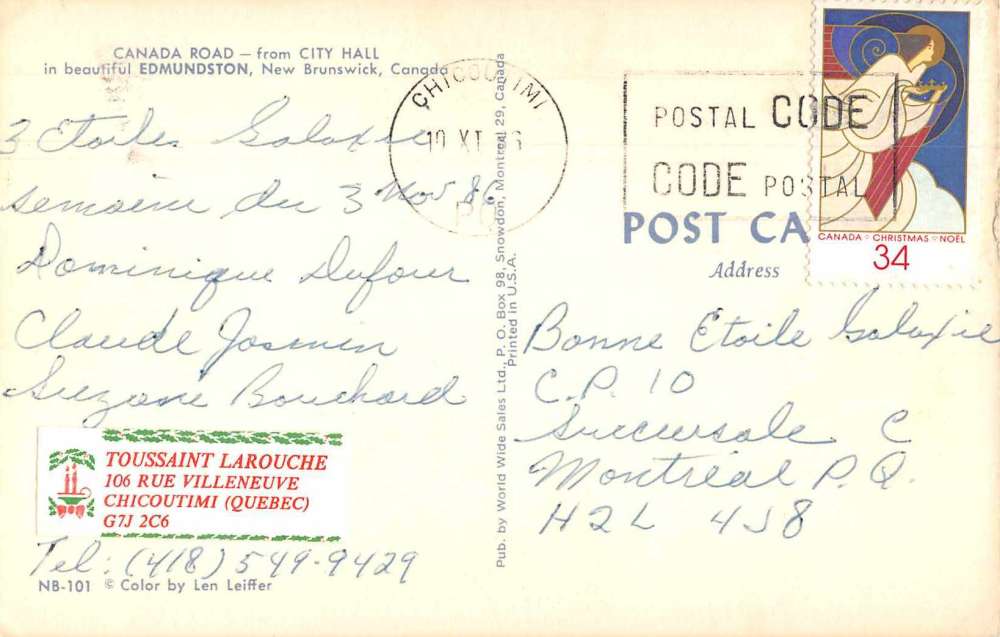 CANADA ROAD — from CITY HALL
in beautiful EDMUNDSTON, New Brunswick, Canada
3 Etoiles Galaxie
semaine du 3 Nov 86
Dominique Dufour
Claude Jasmin
Suzane Bouchard
TOUSSAINT LAROUCHE
106 RUE VILLENEUVE
CHICOUTIMI (QUEBEC)
G7J 2C6
Tel: (418) 549-9429
NB-101 © Color by Len Leiffer
Pub. by World Wide Sales Ltd., P. O. Box 98, Snowdon, Montreal 29, Canada
Printed in U.S.A.
CHICOUTIMI
10 XI 86
POSTAL CODE
CODE POSTAL
CANADA CHRISTMAS NOËL
34
POST CA
Address
Bonne Etoile Galaxie
C.P. 10
Succursale C
Montréal P.Q.
H2L 4J8